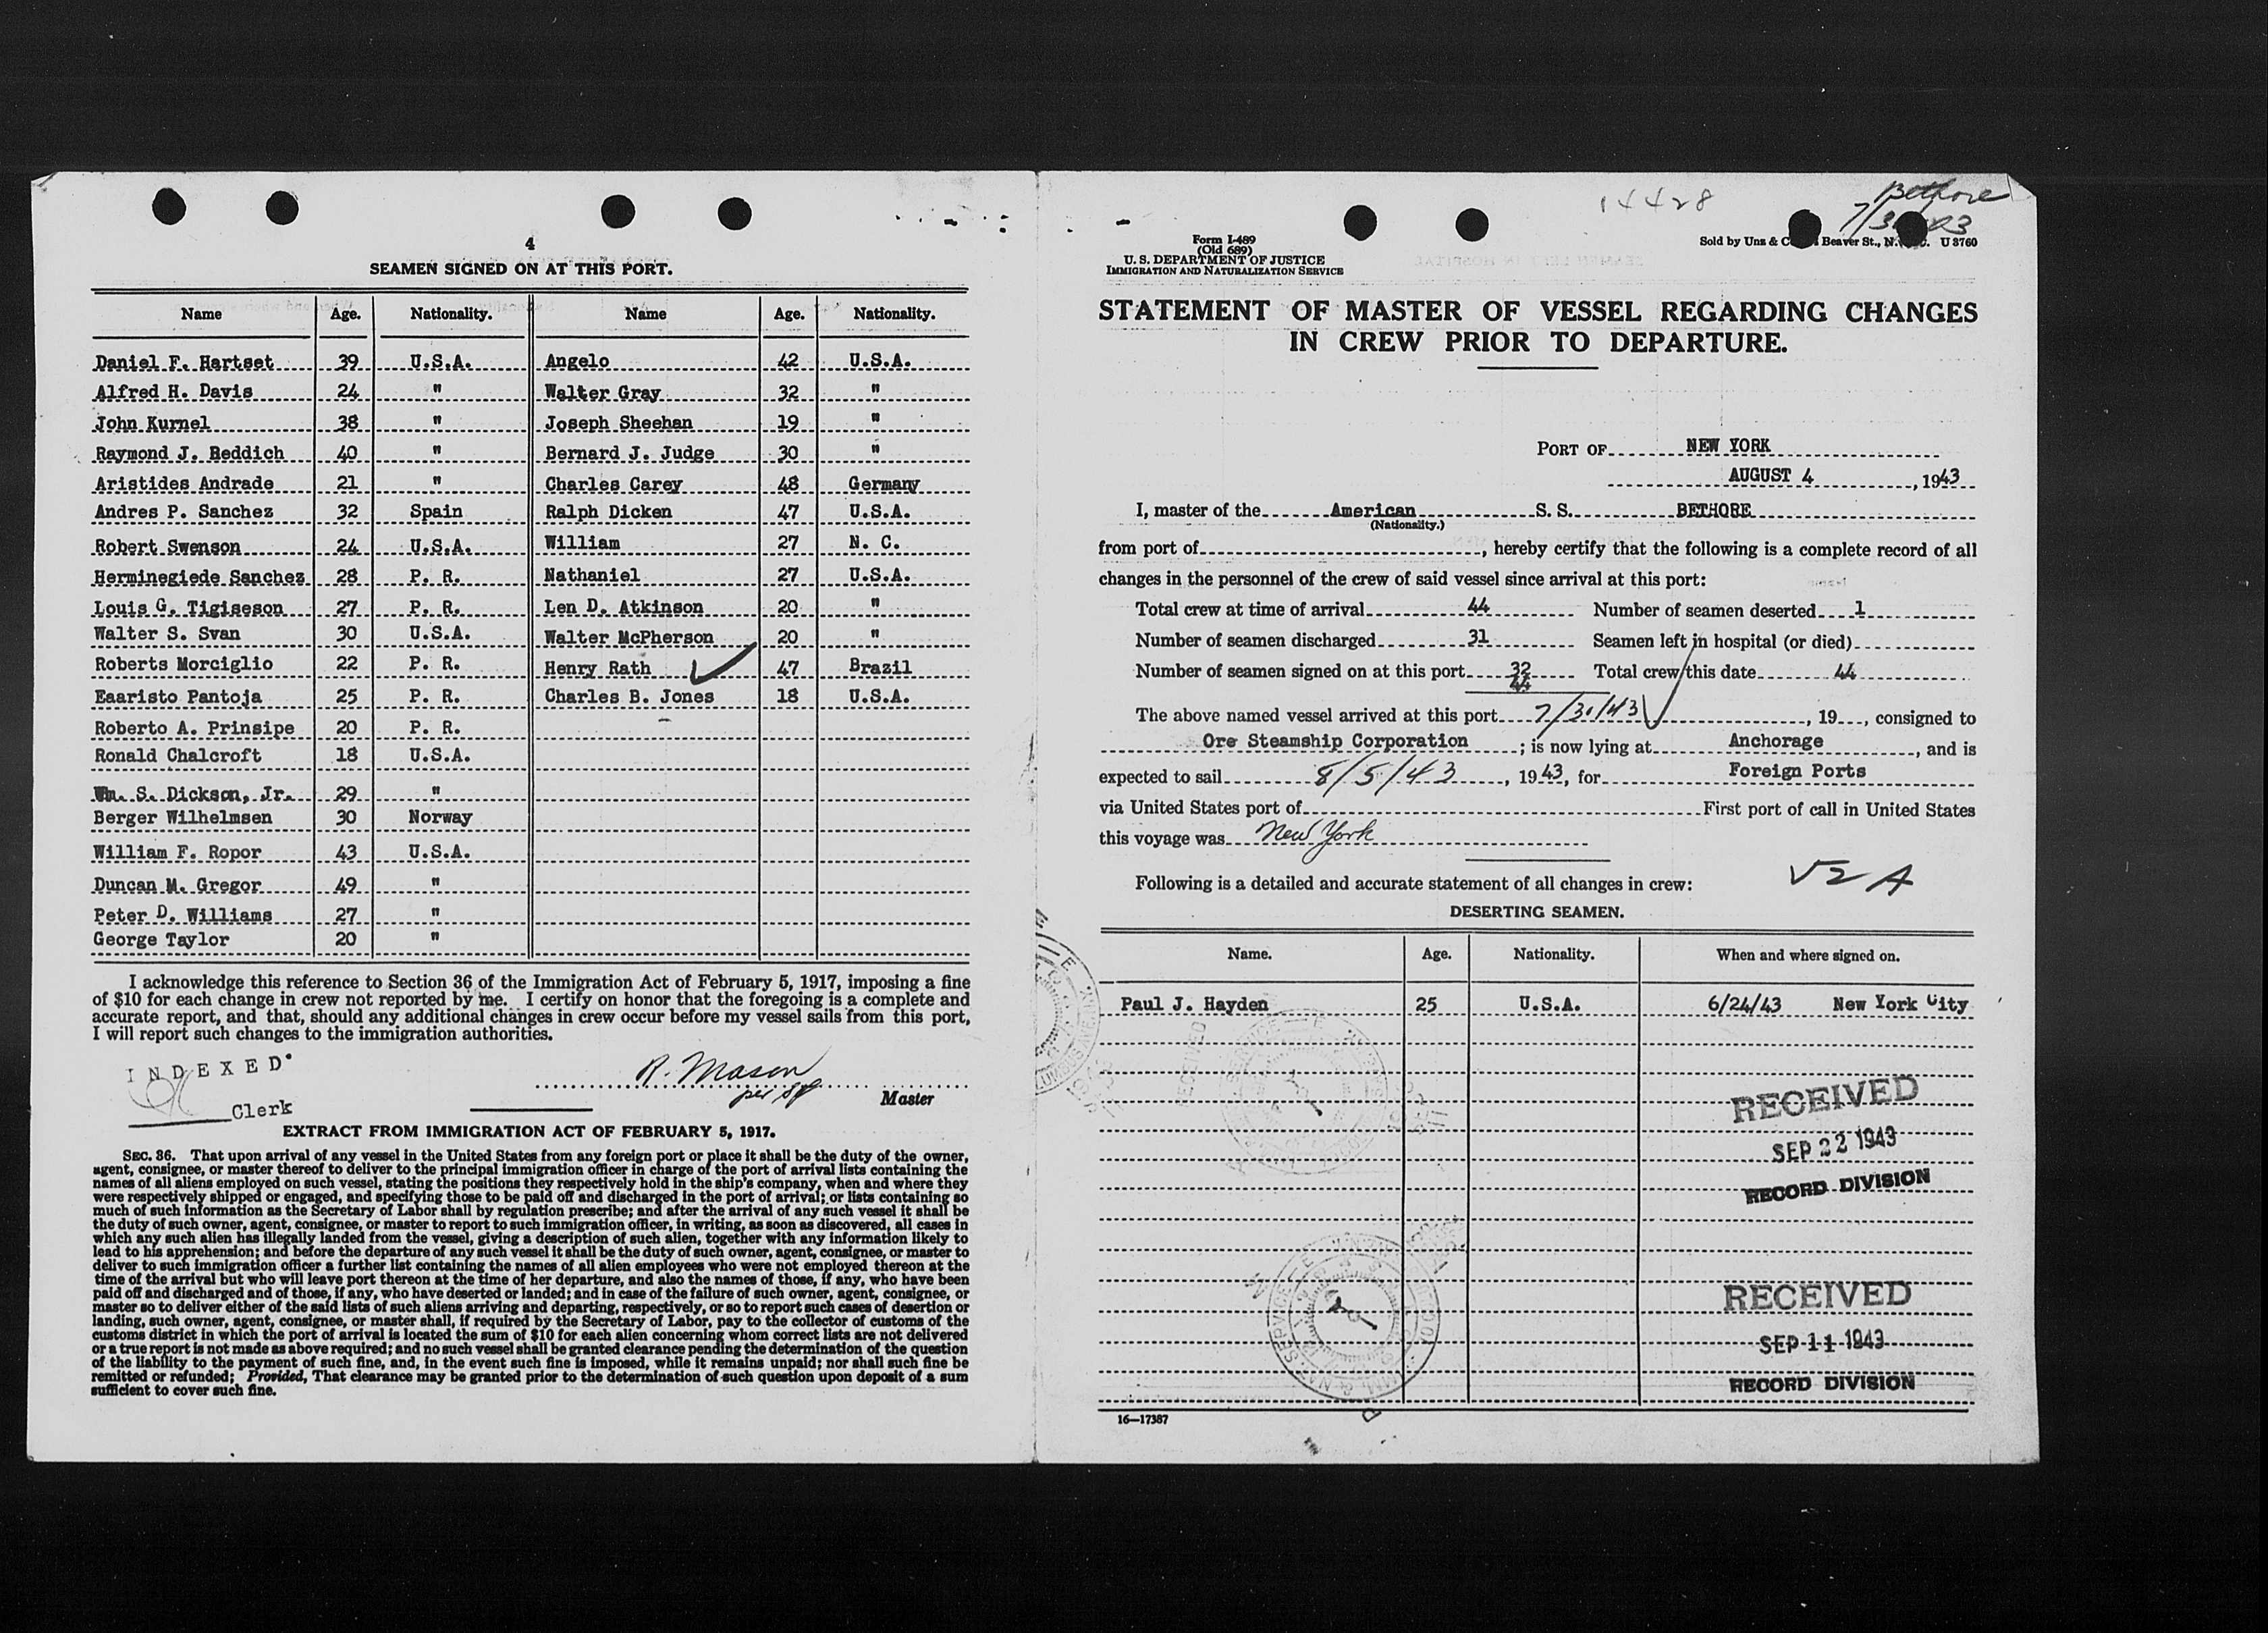 4
SEAMEN SIGNED ON AT THIS PORT.
Name Age. Nationality. Name Age. Nationality.
Daniel F. Hartset 39 U.S.A. Angelo 42 U.S.A.
Alfred H. Davis 24 " Walter Gray 32 "
John Kurnel 38 " Joseph Sheehan 19 "
Raymond J. Beddich 40 " Bernard J. Judge 30 "
Aristides Andrade 21 " Charles Carey 48 Germany
Andres P. Sanchez 32 Spain Ralph Dicken 47 U.S.A.
Robert Swenson 24 U.S.A. William 27 N. C.
Herminegiede Sanchez 28 P. R. Nathaniel 27 U.S.A.
Louis G. Tigiseson 27 P. R. Len D. Atkinson 20 "
Walter S. Svan 30 U.S.A. Walter McPherson 20 "
Roberts Morciglio 22 P. R. Henry Rath 47 Brazil
Eaaristo Pantoja 25 P. R. Charles B. Jones 18 U.S.A.
Roberto A. Prinsipe 20 P. R.
Ronald Chalcroft 18 U.S.A.
Wm. S. Dickson, Jr. 29 "
Berger Wilhelmsen 30 Norway
William F. Ropor 43 U.S.A.
Duncan M. Gregor 49 "
Peter D. Williams 27 "
George Taylor 20 "
I acknowledge this reference to Section 36 of the Immigration Act of February 5, 1917, imposing a fine
of $10 for each change in crew not reported by me. I certify on honor that the foregoing is a complete and
accurate report, and that, should any additional changes in crew occur before my vessel sails from this port,
I will report such changes to the immigration authorities.
INDEXED
R. Mason
per
Clerk
Master
EXTRACT FROM IMMIGRATION ACT OF FEBRUARY 5, 1917.
SEC. 36. That upon arrival of any vessel in the United States from any foreign port or place it shall be the duty of the owner,
agent, consignee, or master thereof to deliver to the principal immigration officer in charge of the port of arrival lists containing the
names of all aliens employed on such vessel, stating the positions they respectively hold in the ship's company, when and where they
were respectively shipped or engaged, and specifying those to be paid off and discharged in the port of arrival; or lists containing so
much of such information as the Secretary of Labor shall by regulation prescribe; and after the arrival of any such vessel it shall be
the duty of such owner, agent, consignee, or master to report to such immigration officer, in writing, as soon as discovered, all cases in
which any such alien has illegally landed from the vessel, giving a description of such alien, together with any information likely to
lead to his apprehension; and before the departure of any such vessel it shall be the duty of such owner, agent, consignee, or master to
deliver to such immigration officer a further list containing the names of all alien employees who were not employed thereon at the
time of the arrival but who will leave port thereon at the time of her departure, and also the names of those, if any, who have been
paid off and discharged and of those, if any, who have deserted or landed; and in case of the failure of such owner, agent, consignee, or
master so to deliver either of the said lists of such aliens arriving and departing, respectively, or so to report such cases of desertion or
landing, such owner, agent, consignee, or master shall, if required by the Secretary of Labor, pay to the collector of customs of the
customs district in which the port of arrival is located the sum of $10 for each alien concerning whom correct lists are not delivered
or a true report is not made as above required; and no such vessel shall be granted clearance pending the determination of the question
of the liability to the payment of such fine, and, in the event such fine is imposed, while it remains unpaid; nor shall such fine be
remitted or refunded; Provided, That clearance may be granted prior to the determination of such question upon deposit of a sum
sufficient to cover such fine.
14428
Bethore
Form I-489
(Old 689)
U. S. DEPARTMENT OF JUSTICE
IMMIGRATION AND NATURALIZATION SERVICE
Sold by Unz & Beaver St., U 3760
STATEMENT OF MASTER OF VESSEL REGARDING CHANGES
IN CREW PRIOR TO DEPARTURE.
PORT OF NEW YORK
AUGUST 4, 1943
I, master of the American S. S. BETHORE
(Nationality.)
from port of , hereby certify that the following is a complete record of all
changes in the personnel of the crew of said vessel since arrival at this port:
Total crew at time of arrival 44 Number of seamen deserted 1
Number of seamen discharged 31 Seamen left in hospital (or died)
Number of seamen signed on at this port 32 Total crew this date 44
44
The above named vessel arrived at this port 7/31/43, 19 , consigned to
Ore Steamship Corporation ; is now lying at Anchorage , and is
expected to sail 8/5/43, 1943, for Foreign Ports
via United States port of First port of call in United States
this voyage was New York
Following is a detailed and accurate statement of all changes in crew:
DESERTING SEAMEN.
Name. Age. Nationality. When and where signed on.
Paul J. Hayden 25 U.S.A. 6/24/43 New York City
RECEIVED
SEP 22 1943
RECORD DIVISION
RECEIVED
SEP 11 1943
RECORD DIVISION
16—17387